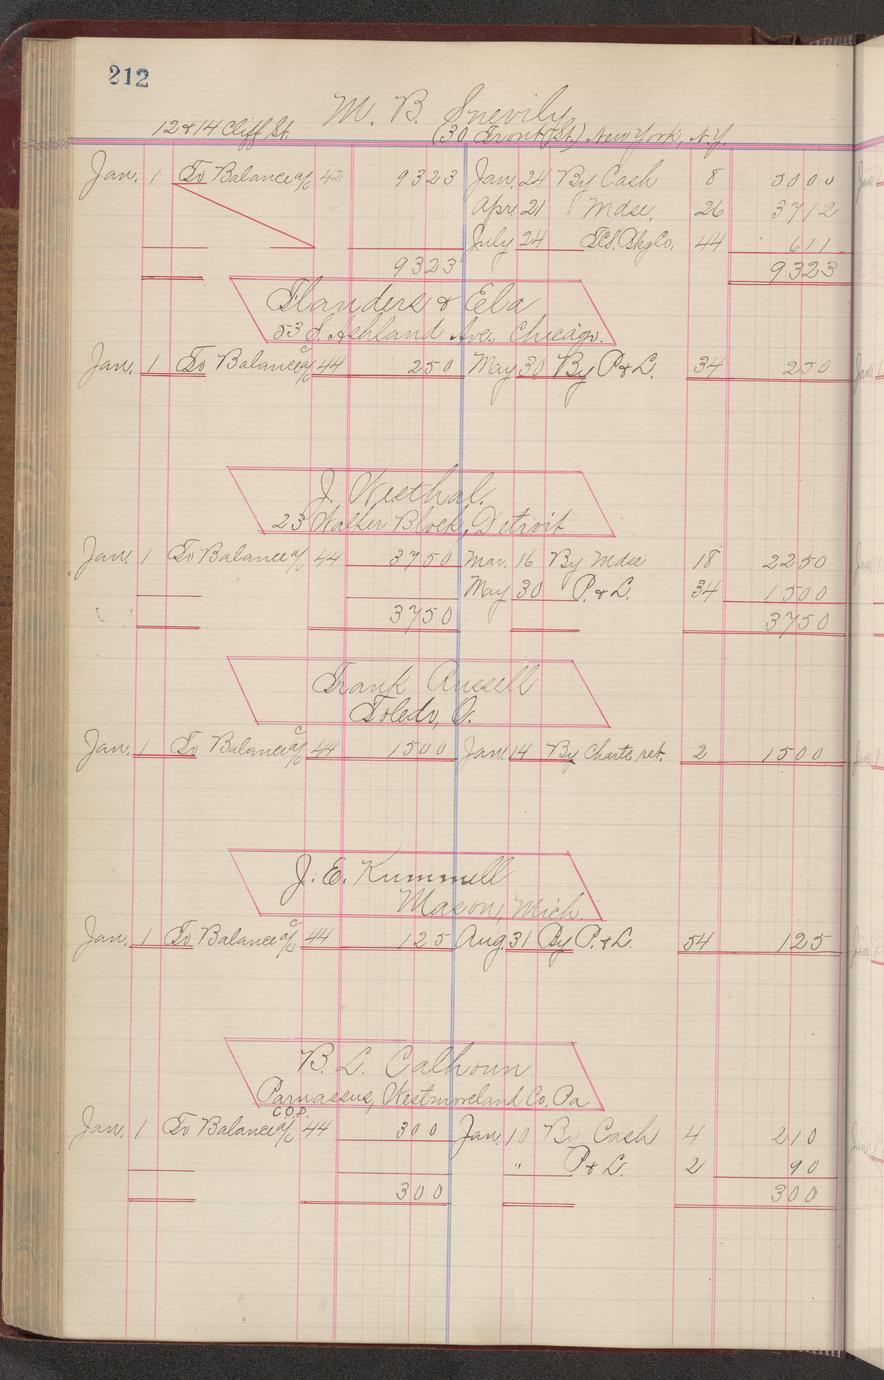 212
M. B. Snevily
12 & 14 Cliff St. (30 Front St.) New York, N.Y.
Jan. 1 To Balance a/c 42 9323 Jan. 24 By Cash 8 5000
Apr. 21 Mdse. 26 3712
July 24 44 611
9323 9323
Flanders & Elba
53 S. Ashland Ave., Chicago.
Jan. 1 To Balance c a/c 44 250 May 30 By P. & L. 34 250
J. Westhal.
23 Walker Block, Detroit
Jan. 1 To Balance a/c 44 3750 Mar. 16 By Mdse 18 2250
May 30 P. & L. 34 1500
3750 3750
Frank Russell
Toledo, O.
Jan. 1 To Balance c a/c 44 1500 Jan. 14 By Charts ret. 2 1500
J. E. Kummell
Mason, Mich.
Jan. 1 To Balance c a/c 44 125 Aug. 31 By P. & L. 54 125
B. L. Calhoun
Parnassus, Westmoreland Co. Pa
Jan. 1 To Balance C.O.D. a/c 44 300 Jan. 10 By Cash 4 210
" P. & L. 2 90
300 300